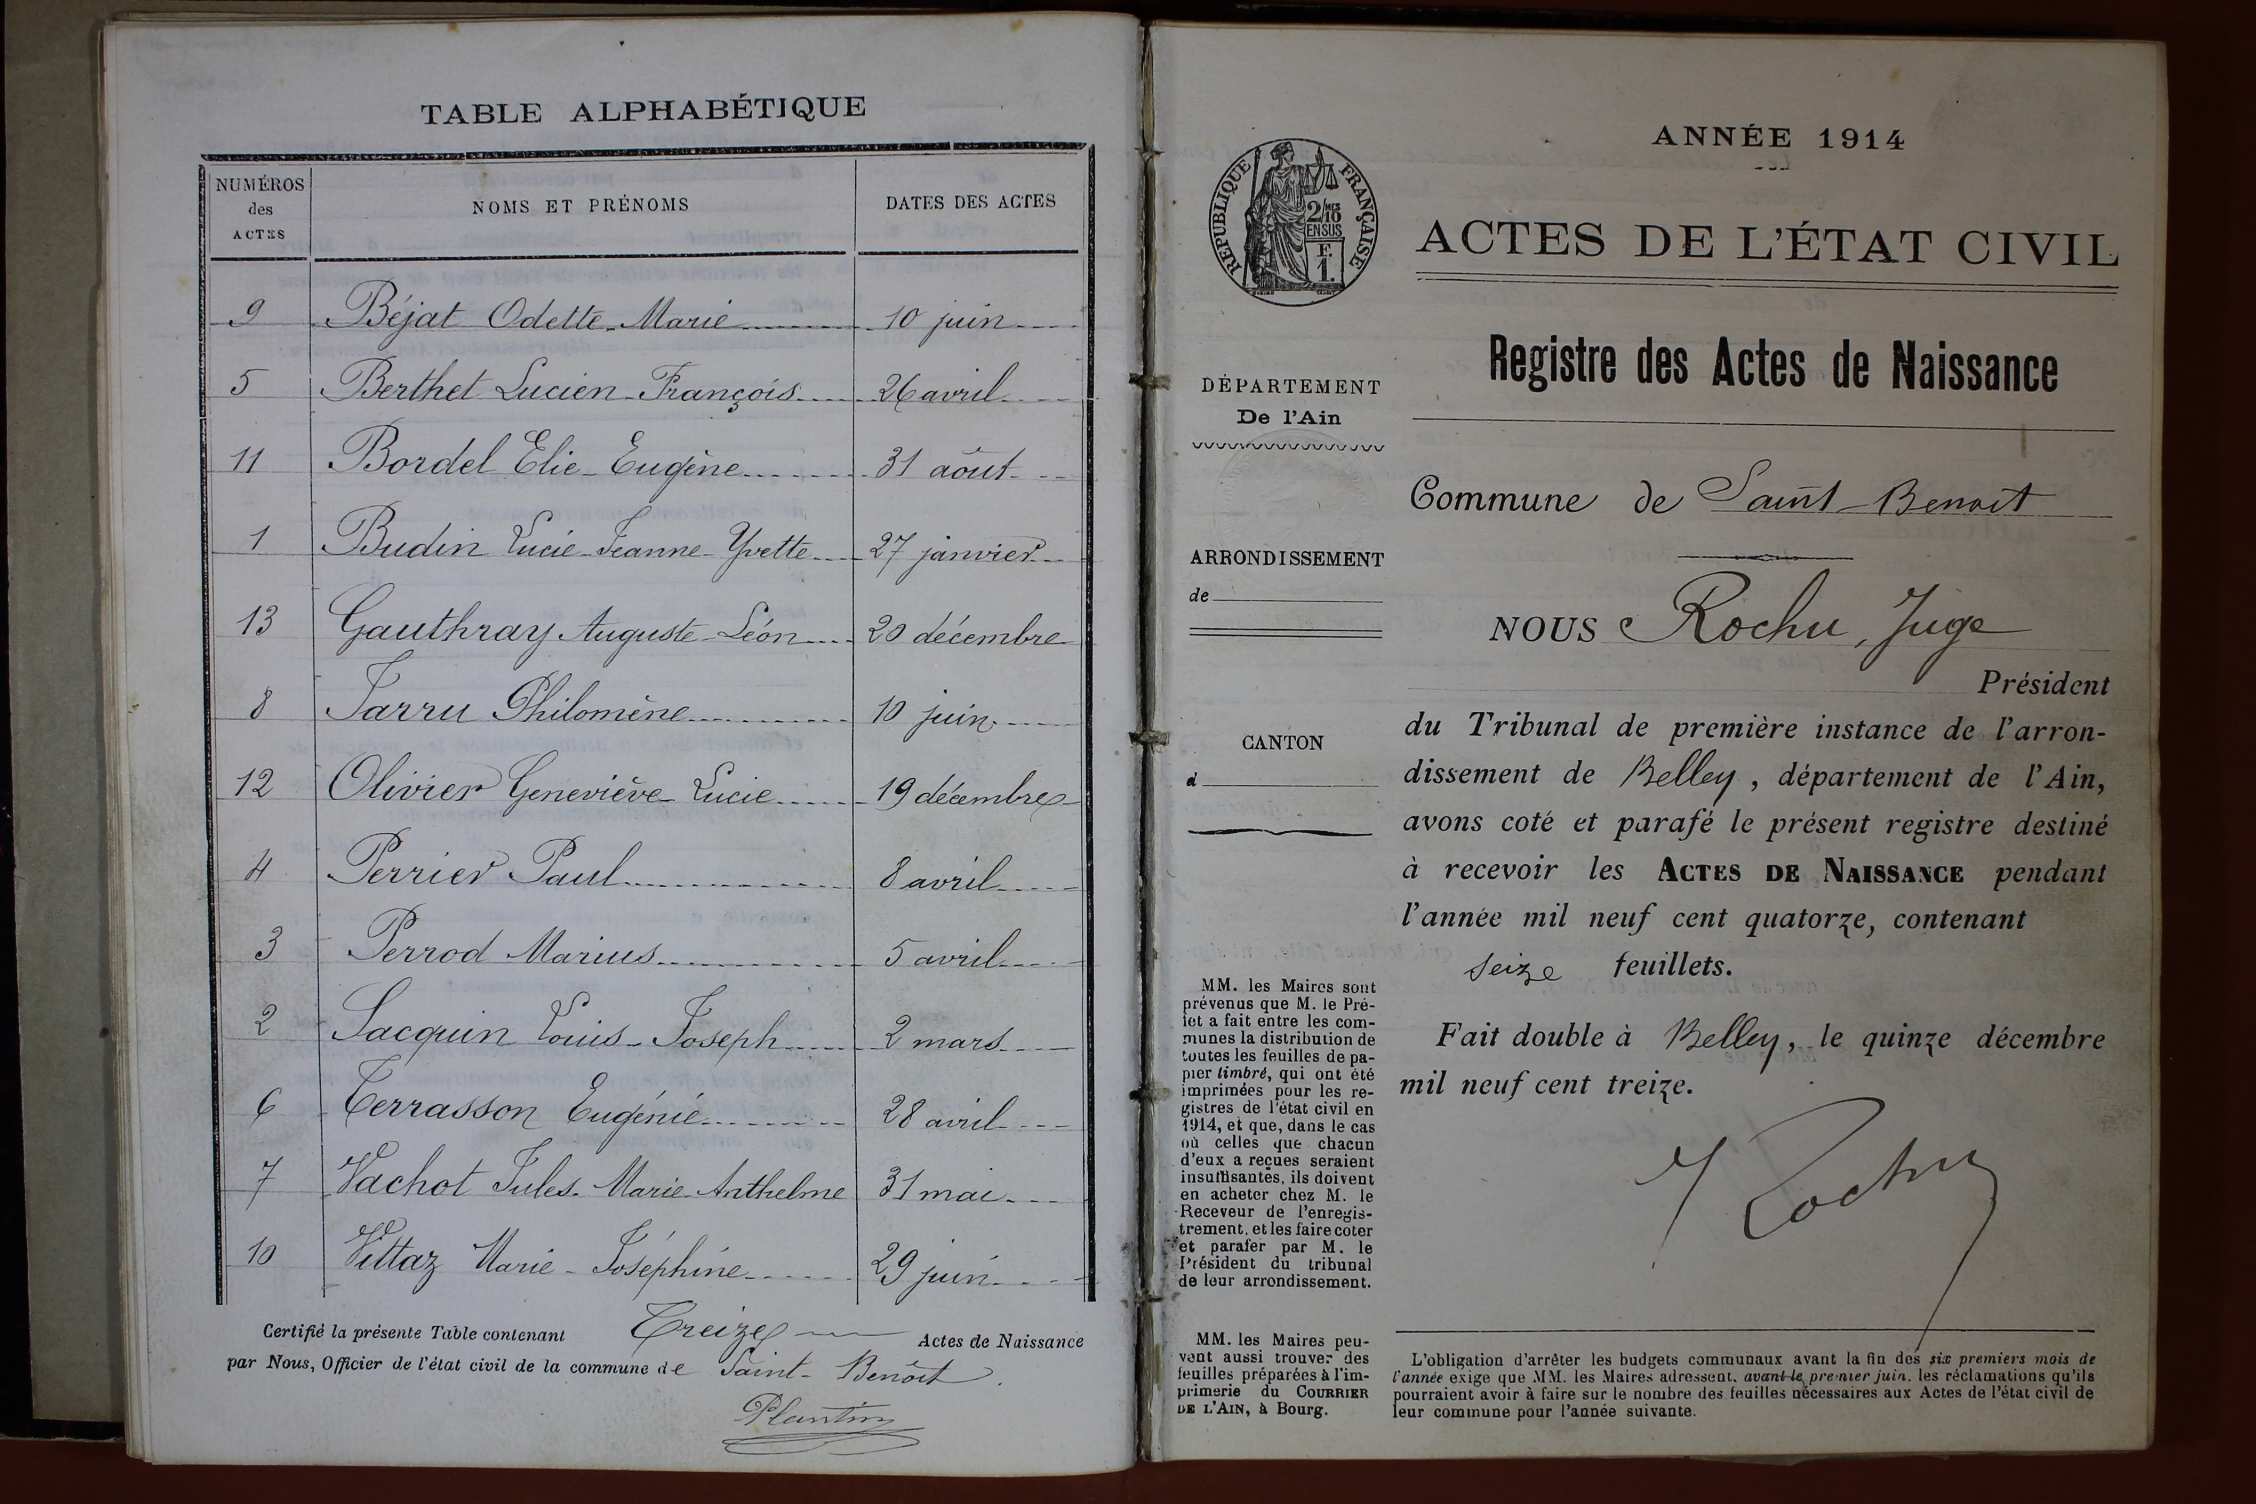 TABLE ALPHABÉTIQUE
NUMÉROS des ACTES NOMS ET PRÉNOMS DATES DES ACTES
9 Béjat Odette Marie 10 juin
5 Berthet Lucien François 26 avril
11 Bordel Elie Eugène 31 août
1 Budin Lucie Jeanne Yvette 27 janvier
13 Gauthray Auguste Léon 20 décembre
8 Jarru Philomène 10 juin
12 Olivier Geneviève Lucie 19 décembre
4 Perrier Paul 8 avril
3 Perrod Marius 5 avril
2 Sacquin Louis Joseph 2 mars
6 Terrasson Eugénie 28 avril
7 Vachot Jules Marie Anthelme 31 mai
10 Vittaz Marie Joséphine 29 juin
Certifié la présente Table contenant Treize Actes de Naissance
par Nous, Officier de l'état civil de la commune de Saint-Benoît.
Plantin
ANNÉE 1914
RÉPUBLIQUE FRANÇAISE
2/10 MES
EN SUS
F.
1.
ACTES DE L'ÉTAT CIVIL
Registre des Actes de Naissance
DÉPARTEMENT
De l'Ain
ARRONDISSEMENT
de
CANTON
d
MM. les Maires sont
prévenus que M. le Pré-
fet a fait entre les com-
munes la distribution de
toutes les feuilles de pa-
pier timbré, qui ont été
imprimées pour les re-
gistres de l'état civil en
1914, et que, dans le cas
où celles que chacun
d'eux a reçues seraient
insuffisantes, ils doivent
en acheter chez M. le
Receveur de l'enregis-
trement, et les faire coter
et parafer par M. le
Président du tribunal
de leur arrondissement.
MM. les Maires peu-
vent aussi trouver des
feuilles préparées à l'im-
primerie du COURRIER
DE L'AIN, à Bourg.
Commune de Saint-Benoit
NOUS Rochu, Juge
Président
du Tribunal de première instance de l'arron-
dissement de Belley, département de l'Ain,
avons coté et parafé le présent registre destiné
à recevoir les ACTES DE NAISSANCE pendant
l'année mil neuf cent quatorze, contenant
seize feuillets.
Fait double à Belley, le quinze décembre
mil neuf cent treize.
Rochu
L'obligation d'arrêter les budgets communaux avant la fin des six premiers mois de
l'année exige que MM. les Maires adressent, avant le premier juin, les réclamations qu'ils
pourraient avoir à faire sur le nombre des feuilles nécessaires aux Actes de l'état civil de
leur commune pour l'année suivante.